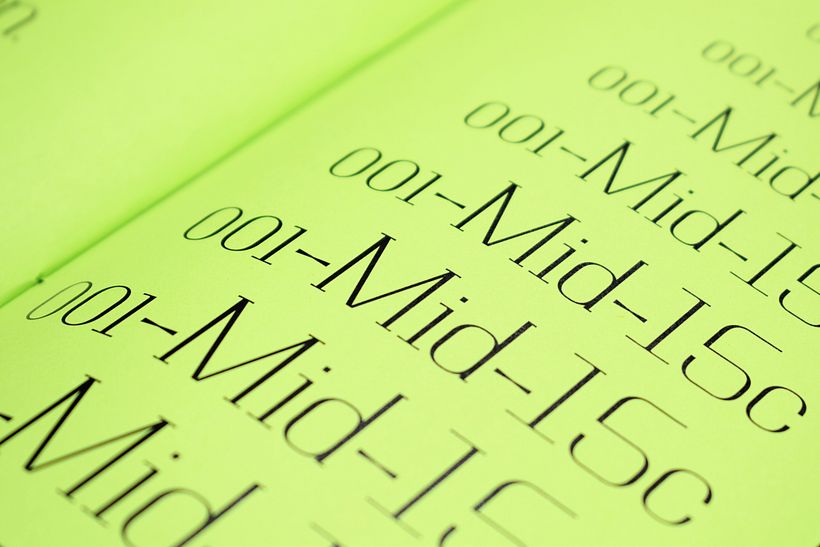 n.
001-M
001-Mid
001-Mid-15
001-Mid-15c
001-Mid-15c
001-Mid-15
-Mid